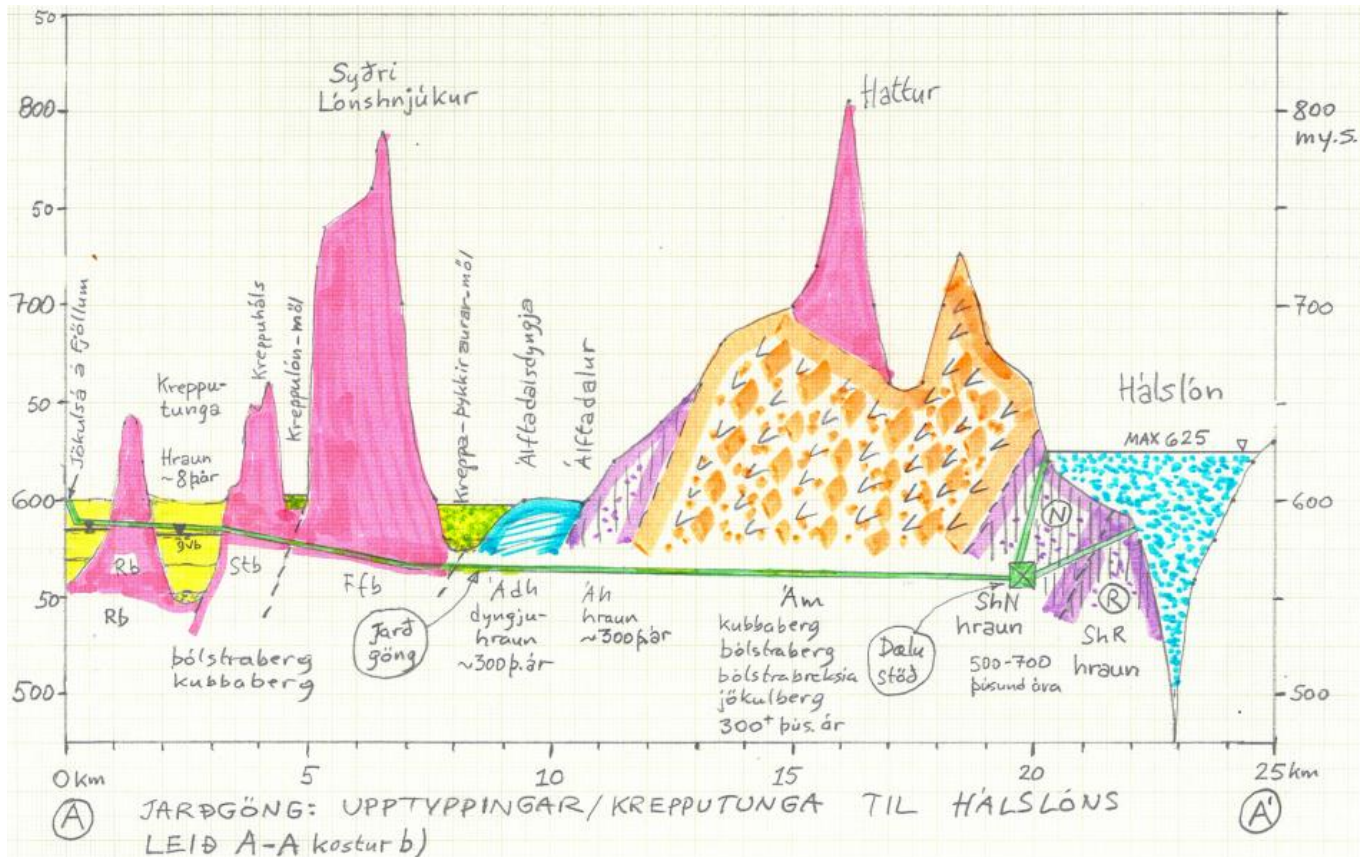 50
800
50
700
50
600
50
500
50
800
my.S.
700
600
500
Syðri
Lónshnjúkur
Háttur
Jökulsá á Fjöllum
Kreppu-
tunga
Hraun
~8þ.ár
Kreppuháls
Kreppulón-möl
Kreppa-þykkir aurar-möl
Álftadalsdyngja
Álftadalur
Hálslón
MAX 625
gvb
Rb
Rb
Stb
Ffb
bólstraberg
kubbaberg
Jarð
göng
Ádh
dyngju-
hraun
~300þ.ár
Áh
hraun
~300þ.ár
Am
kubbaberg
bólstraberg
bólstrabreksía
jökulberg
300+ þús.ár
Dælu
stöð
ShN
hraun
500-700
þúsund ára
N
R
ShR
hraun
0 km
5
10
15
20
25 km
A JARÐGÖNG: UPPTYPPINGAR/KREPPUTUNGA TIL HÁLSLÓNS A'
LEIÐ A-A kostur b)